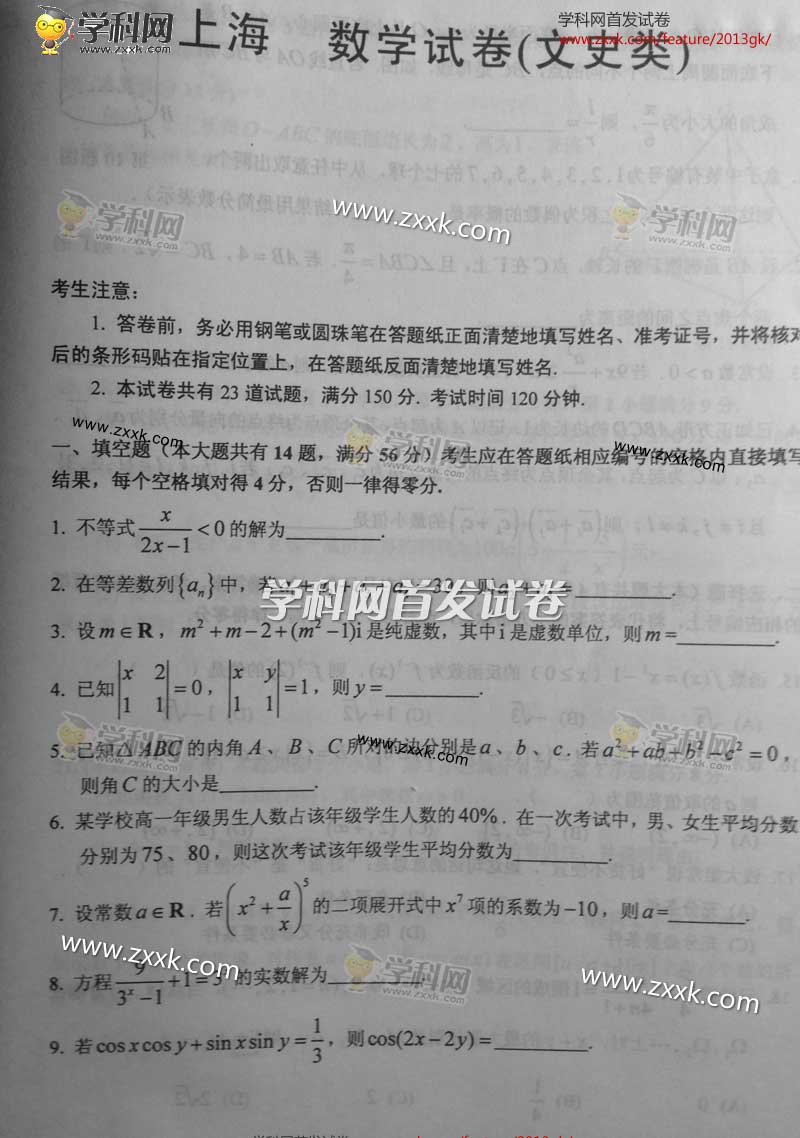 学科网首发试卷
www.zxxk.com/feature/2013gk/
学科网
www.zxxk.com
上海 数学试卷(文史类)
www.zxxk.com
学科网
www.zxxk.com
学科网
www.zxxk.com
考生注意：
1. 答卷前，务必用钢笔或圆珠笔在答题纸正面清楚地填写姓名、准考证号，并将核对
后的条形码贴在指定位置上，在答题纸反面清楚地填写姓名.
2. 本试卷共有 23 道试题，满分 150 分. 考试时间 120 分钟.
www.zxxk.com
学科网
www.zxxk.com
www.zxxk.com
一、填空题（本大题共有 14 题，满分 56 分）考生应在答题纸相应编号的空格内直接填写
结果，每个空格填对得 4 分，否则一律得零分.
1. 不等式 x/(2x−1) <0 的解为________.
2. 在等差数列{aₙ}中，若
学科网首发试卷
3. 设m∈R，m²+m−2+(m²−1)i 是纯虚数，其中i 是虚数单位，则m=________.
4. 已知|x 2; 1 1|=0，|x y; 1 1|=1，则y=________.
学科网
www.zxxk.com
www.zxxk.com
学科网
www.zxxk.com
5. 已知△ABC 的内角A、B、C 所对的边分别是a、b、c. 若a²+ab+b²−c²=0，
则角C 的大小是________.
6. 某学校高一年级男生人数占该年级学生人数的40%. 在一次考试中，男、女生平均分数
分别为75、80，则这次考试该年级学生平均分数为________.
7. 设常数a∈R. 若(x²+a/x)⁵ 的二项展开式中x⁷ 项的系数为−10，则a=________.
www.zxxk.com
学科网
www.zxxk.com
www.zxxk.com
8. 方程 9/(3ˣ−1) +1=3 的实数解为________.
9. 若cos x cos y+sin x sin y=1/3，则cos(2x−2y)=________.
学科网首发试卷